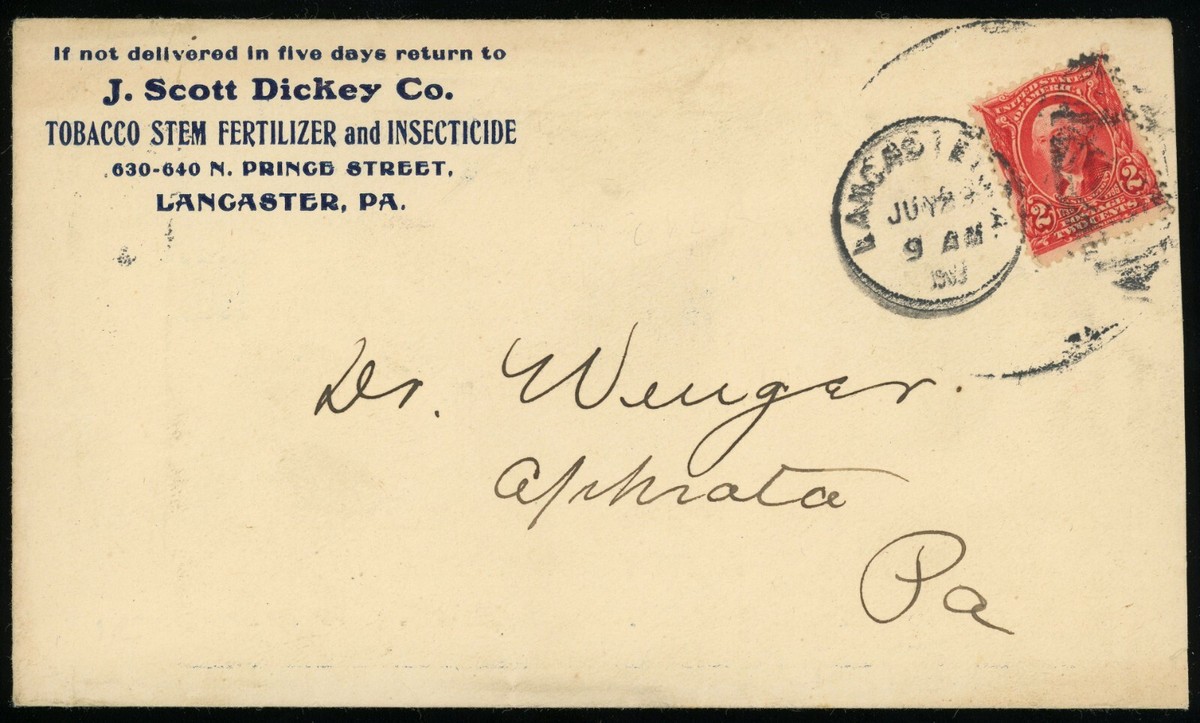 If not delivered in five days return to
J. Scott Dickey Co.
TOBACCO STEM FERTILIZER and INSECTICIDE
630-640 N. PRINCE STREET,
LANCASTER, PA.
UNITED STATES
OF AMERICA
2 2
TWO CENTS
LANCASTER
JUN
9 AM
1903
Dr. Wenger
Aphrata
Pa